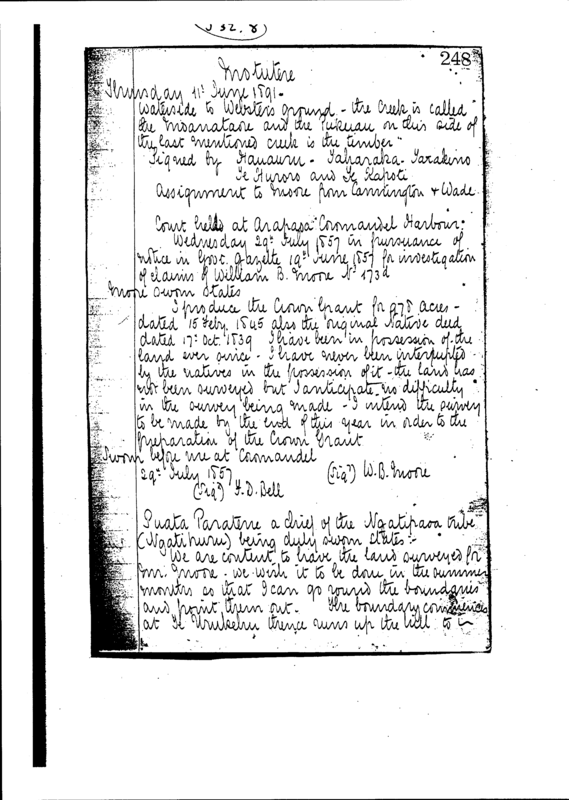 (J 52. 8)
248
Motutere
Thursday 11th June 1891 -
Waterside to Websters ground - the Creek is called
the and the Pukeuau on this side of
the last mentioned creek is the timber"
Signed by Hauauru - Taharaka - Tarakino
Te Hurore and Te Kapoti
Assignment to Moore from Cannington & Wade.
Court held at Arapasa Coromandel Harbour.
Wednesday 29th July 1857 in pursuance of
notice in Govt. Gazette 19th June 1857 for investigation
of claims of William B. Moore No 173d
Moore sworn states
I produce the Crown Grant for 978 acres -
dated 15 Feby. 1845 also the original Native deed
dated 17: Oct. 1839 I have been in possession of the
land ever since - I have never been interrupted
by the natives in the possession of it - the land has
not been surveyed but I anticipate no difficulty
in the survey being made - I intend the survey
to be made by the end of this year in order to the
preparation of the Crown Grant
Sworn before me at Coromandel
29th July 1857 (Sigd) W. B. Moore
(Sigd) F. D. Bell
Puata Paratene a chief of the Ngatipaoa tribe
(Ngatihuru) being duly sworn states :-
We are content to have the land surveyed for
Mr. Moore. we wish it to be done in the summer
months so that I can go round the boundaries
and point them out. The boundary commences
at Te thence runs up the hill to